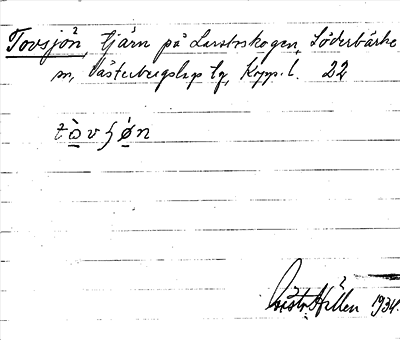 Tovsjön, tjärn på Larsboskogen, Söderbärke
sn, Västerbergslags tg, Kopp. l. 22
tòvʃön
Hellén 1934.